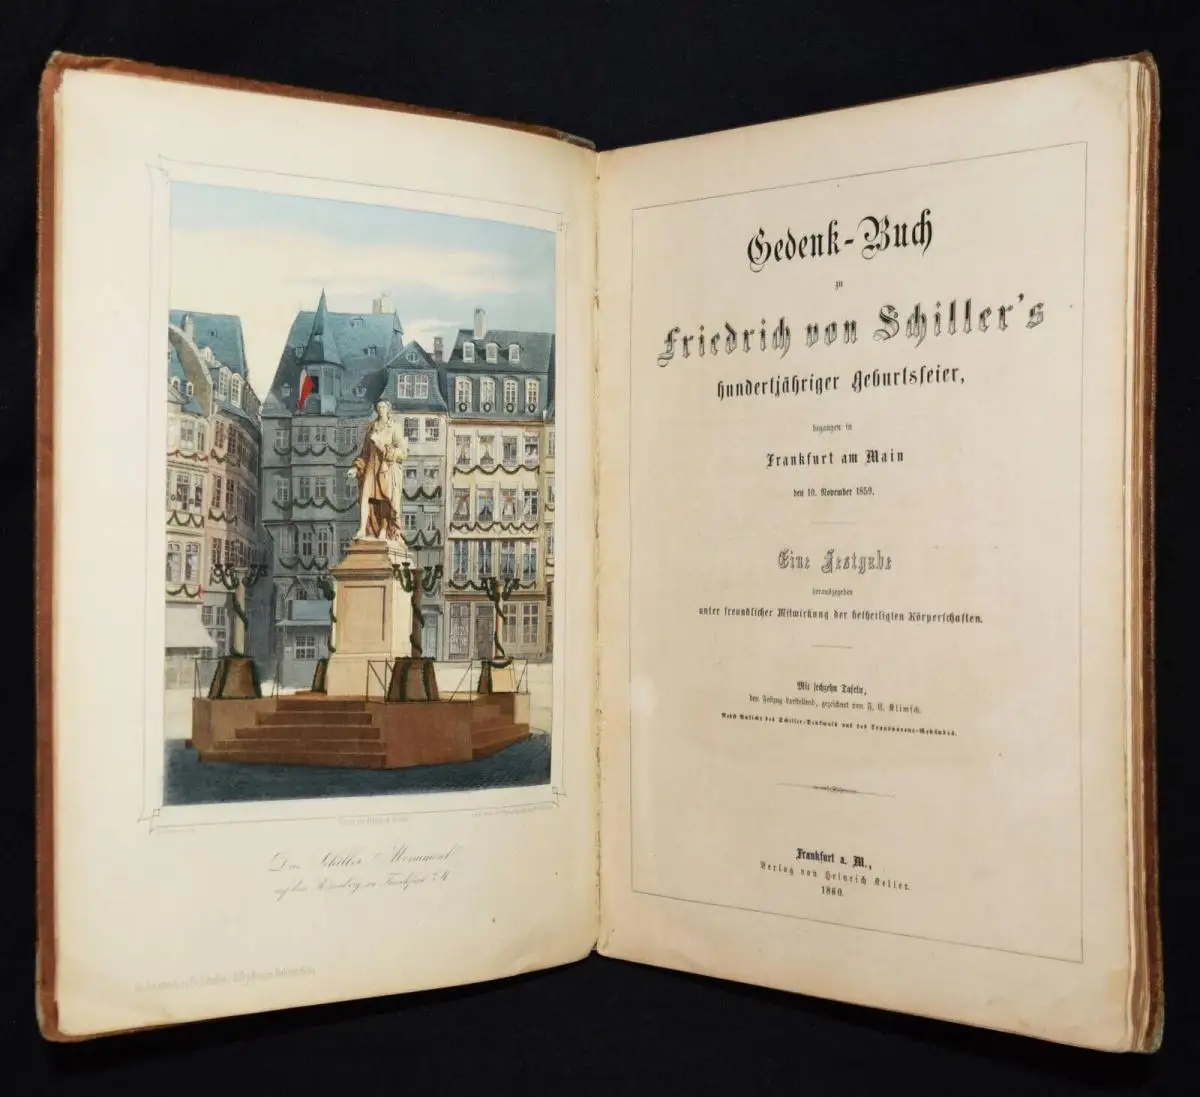 Das Schiller Monument
auf dem Römerberg in Frankfurt a/M
Gedenk-Buch
zu
Friedrich von Schiller's
hundertjähriger Geburtsfeier,
begangen in
Frankfurt am Main
den 10. November 1859.
Eine Festgabe
herausgegeben
unter freundlicher Mitwirkung der betheiligten Körperschaften.
Mit sechzehn Tafeln,
den Festzug darstellend, gezeichnet von F. C. Klimsch.
Nebst Ansicht des Schiller-Denkmals und des Transparenz-Gebäudes.
Frankfurt a. M.,
Verlag von Heinrich Keller.
1860.